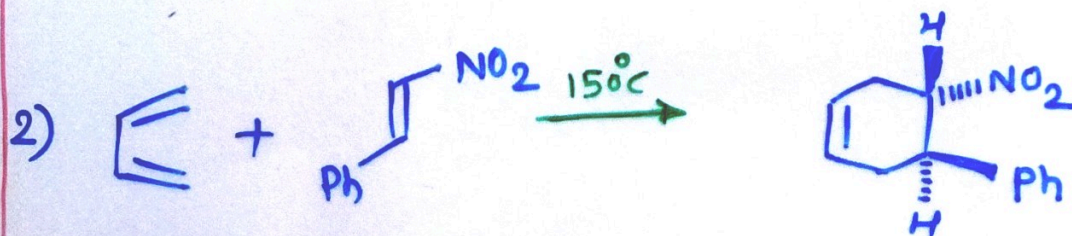 2)
+
NO2
Ph
150°C
H
NO2
Ph
H